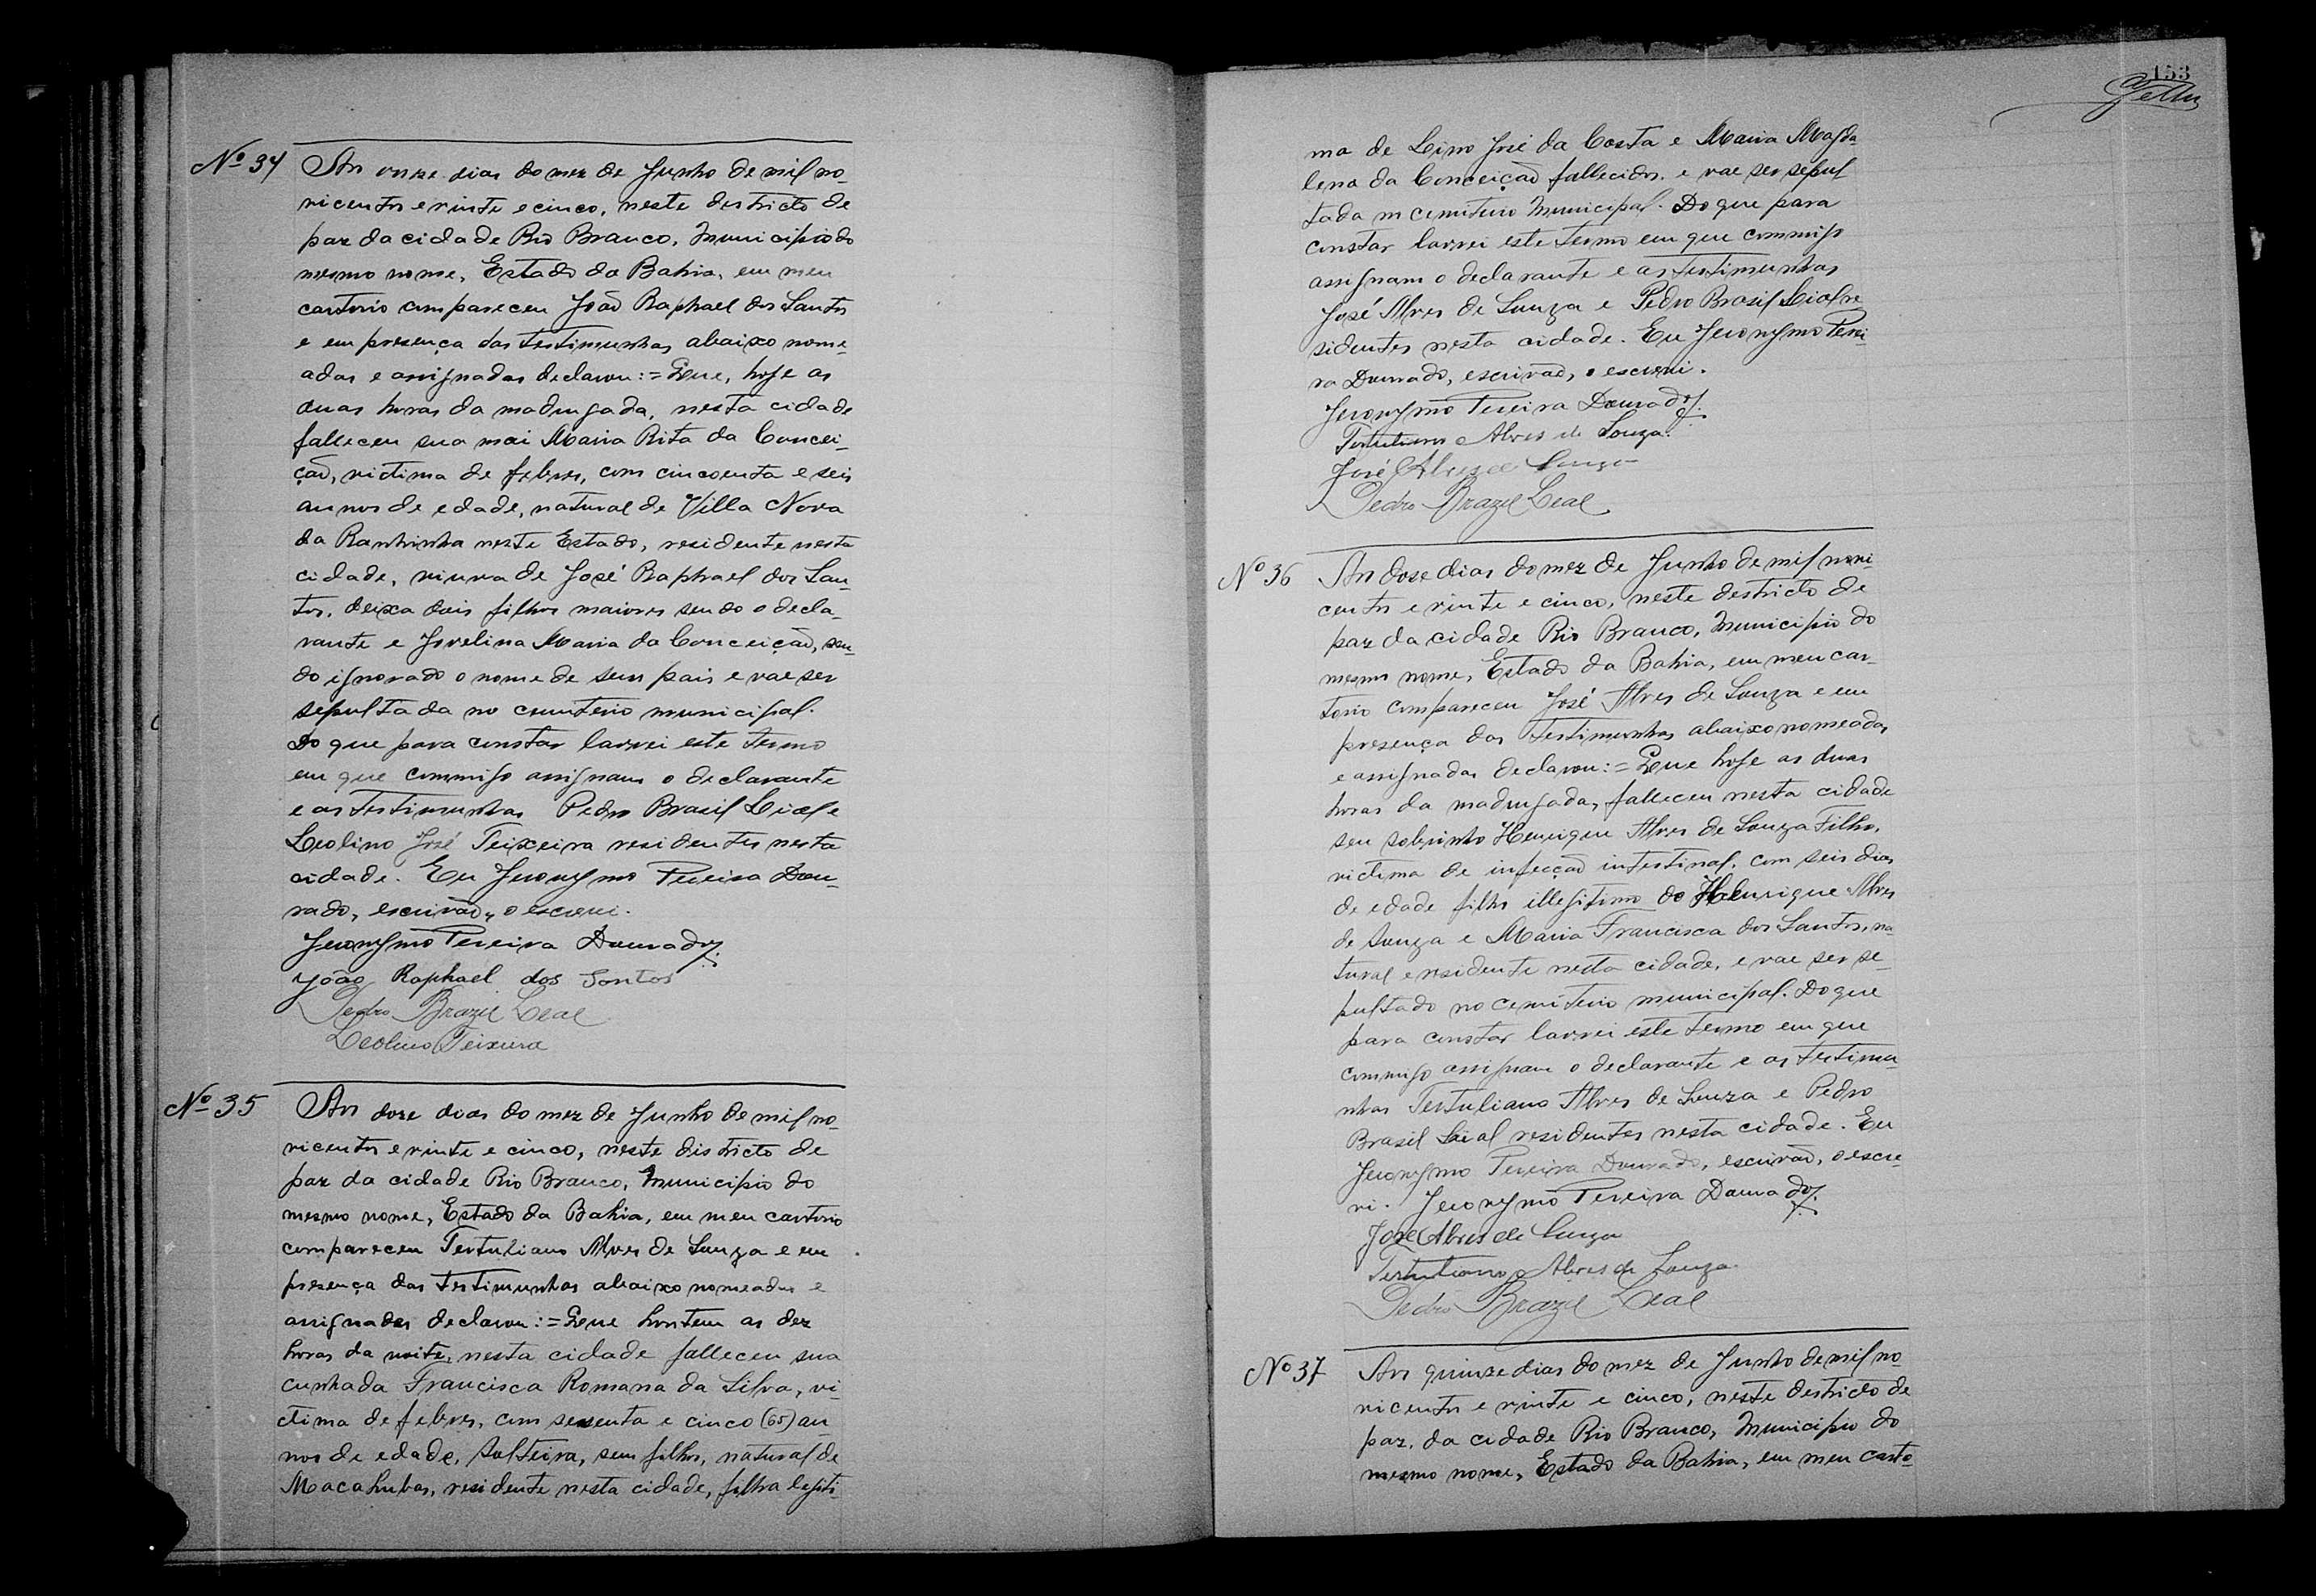 Nº 34
Aos onze dias do mez de Junho de mil no-
vicentos e vinte e cinco, neste destricto de
paz da cidade Rio Branco, Municipio do
mesmo nome, Estado da Bahia, em meu
cartorio compareceu João Raphael dos Santos
e em presença das testimunhas abaixo nome-
adas e assignadas declarou:= Que, hoje as
duas horas da madrugada, nesta cidade
falleceu sua mai Maria Rita da Concei-
ção, victima de febres, com cincoenta e seis
annos de edade, natural de Villa Nova
da Ranhinha neste Estado, residente nesta
cidade, viuva de José Raphael dos San-
tos, deixa dois filhos maiores sendo o decla-
rante e Jovelina Maria da Conceição, sen-
do ignorado o nome de seus pais e vae ser
sepultada no cemiterio municipal.
Do que para constar lavrei este termo
em que commigo assignam o declarante
e as testimunhas Pedro Brasil Lial e
Leolino José Teixeira residentes nesta
cidade. Eu Jeronymo Pereira Dou-
rado, escrivão, o escrevi.
Jeronymo Pereira Dourado
João Raphael dos Santos
Pedro Brazil Leal
Leolino Teixeira
Nº 35
Aos doze dias do mez de Junho de mil no-
vicentos e vinte e cinco, neste districto de
paz da cidade Rio Branco, Municipio do
mesmo nome, Estado da Bahia, em meu cartorio
compareceu Tertuliano Alves de Souza e em
presença das testimunhas abaixo nomeadas e
assignadas declarou:= Que hontem as dez
horas da noite, nesta cidade falleceu sua
cunhada Francisca Romana da Silva, vi-
ctima de febres, com sessenta e cinco (65) an-
nos de edade, solteira, sem filhos, natural de
Macahubas, residente nesta cidade, filha legiti-
153
ma de Lino José da Costa e Maria Magda-
lena da Conceição fallecidos, e vae ser sepul
tada no cemiterio Municipal. Do que para
constar lavrei este termo em que commigo
assignam o declarante e as testimunhas
José Alves de Souza e Pedro Brasil Lial re-
sidentes nesta cidade. Eu Jeronymo Perei-
ra Dourado, escrivão, o escrevi.
Jeronymo Pereira Dourado
Tertuliano Alves de Souza.
José Alves de Souza
Pedro Brazil Leal
Nº 36
Aos dose dias do mez de Junho de mil novi-
centos e vinte e cinco, neste destricto de
paz da cidade Rio Branco, Municipio do
mesmo nome, Estado da Bahia, em meu car-
torio compareceu José Alves de Souza e em
presença das testimunhas abaixo nomeadas
e assignadas declarou:= Que hoje as duas
horas da madrugada, falleceu nesta cidade
seu sobrinho Henrique Alves de Souza Filho,
victima de infecção intestinal, com seis dias
de edade filho illegitimo de Henrique Alves
de Souza e Maria Francisca dos Santos, na-
tural e residente nesta cidade, e vae ser se-
pultado no cemiterio municipal. Do que
para constar lavrei este termo em que
commigo assignam o declarante e as testimu-
nhas Tertuliano Alves de Souza e Pedro
Brasil Laial residentes nesta cidade. Eu
Jeronymo Pereira Dourado, escrivão, o escre-
vi. Jeronymo Pereira Dourado
José Alves de Souza
Tertuliano Alves de Souza
Pedro Brazil Leal
Nº 37
Aos quinze dias do mez de Junho de mil no-
vicentos e vinte e cinco, neste destricto de
paz, da cidade Rio Branco, Municipio do
mesmo nome, Estado da Bahia, em meu carto-